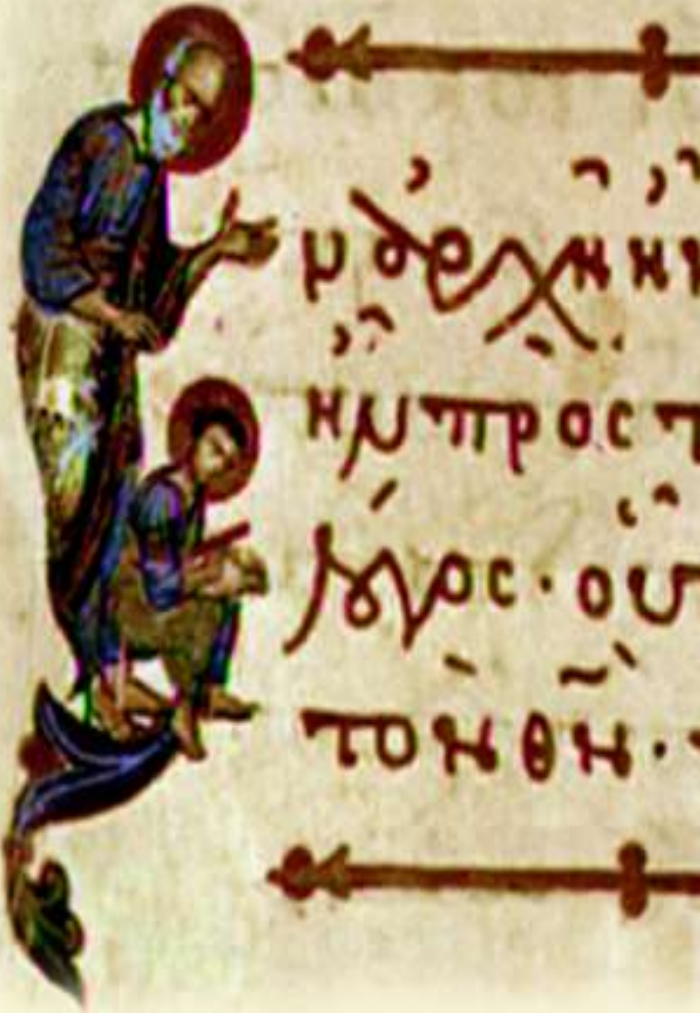 ν ἀρχῆ ἦν
ἦν πρὸς τ
λόγος· οὗ
τὸν θν̄·